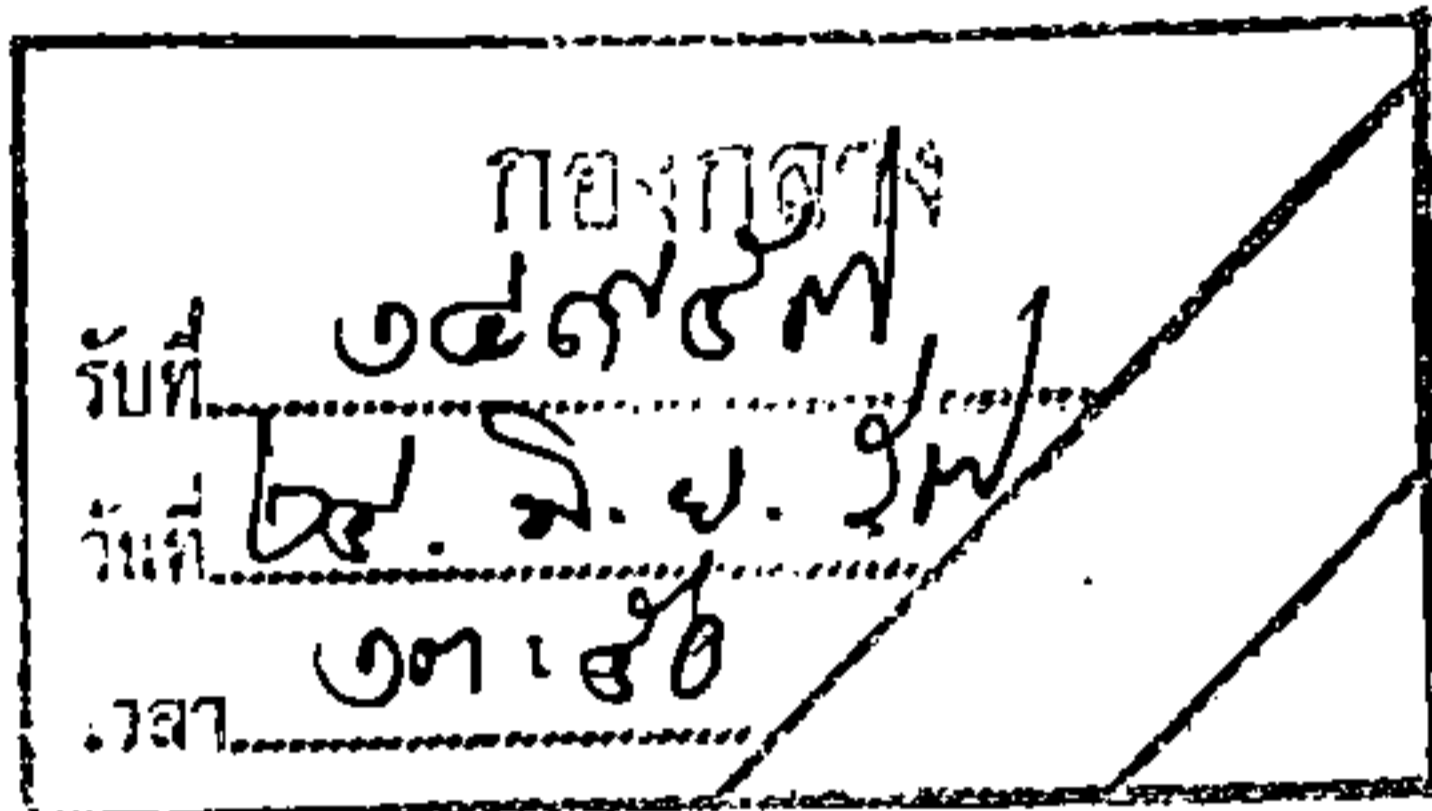 กองกลาง
รับที่ ๑๔๙๕๗
วันที่ ๒๔. มิ.ย. ๕๗
เวลา ๑๓.๕๐